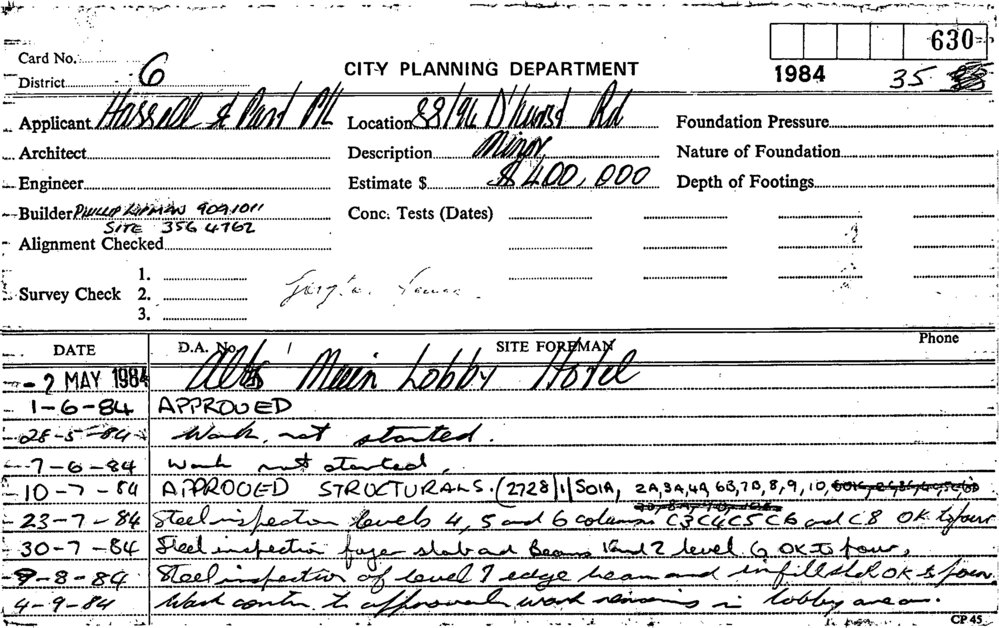 630
Card No.
District 6
CITY PLANNING DEPARTMENT
1984 35
Applicant Hassell & Part P/L Location 88/94 D'hurst Rd Foundation Pressure
Architect Description Minor Nature of Foundation
Engineer Estimate $ $400,000 Depth of Footings
Builder PHILLIP LIPMAN 909 1011 Conc. Tests (Dates)
SITE 356 4762
Alignment Checked
1.
Survey Check 2.
3.
DATE D.A. No. SITE FOREMAN Phone
- 2 MAY 1984 Alts Main Lobby Hotel
1-6-84 APPROVED
28-5-84 Work not started.
7-6-84 Work not started.
10-7-84 APPROVED STRUCTURALS. (2728) 1/S01A, 2A, 3A, 4A, 6B, 7B, 8, 9, 10,
23-7-84 Steel inspection levels 4, 5 and 6 columns C3 C4 C5 C6 and C8 OK to pour
30-7-84 Steel inspection foyer slab and Beams 1 and 2 level G OK to pour.
9-8-84 Steel inspection of level 7 edge beam and infill slab OK to pour.
4-9-84 Work contin. to approval work remains in lobby area.
CP 45